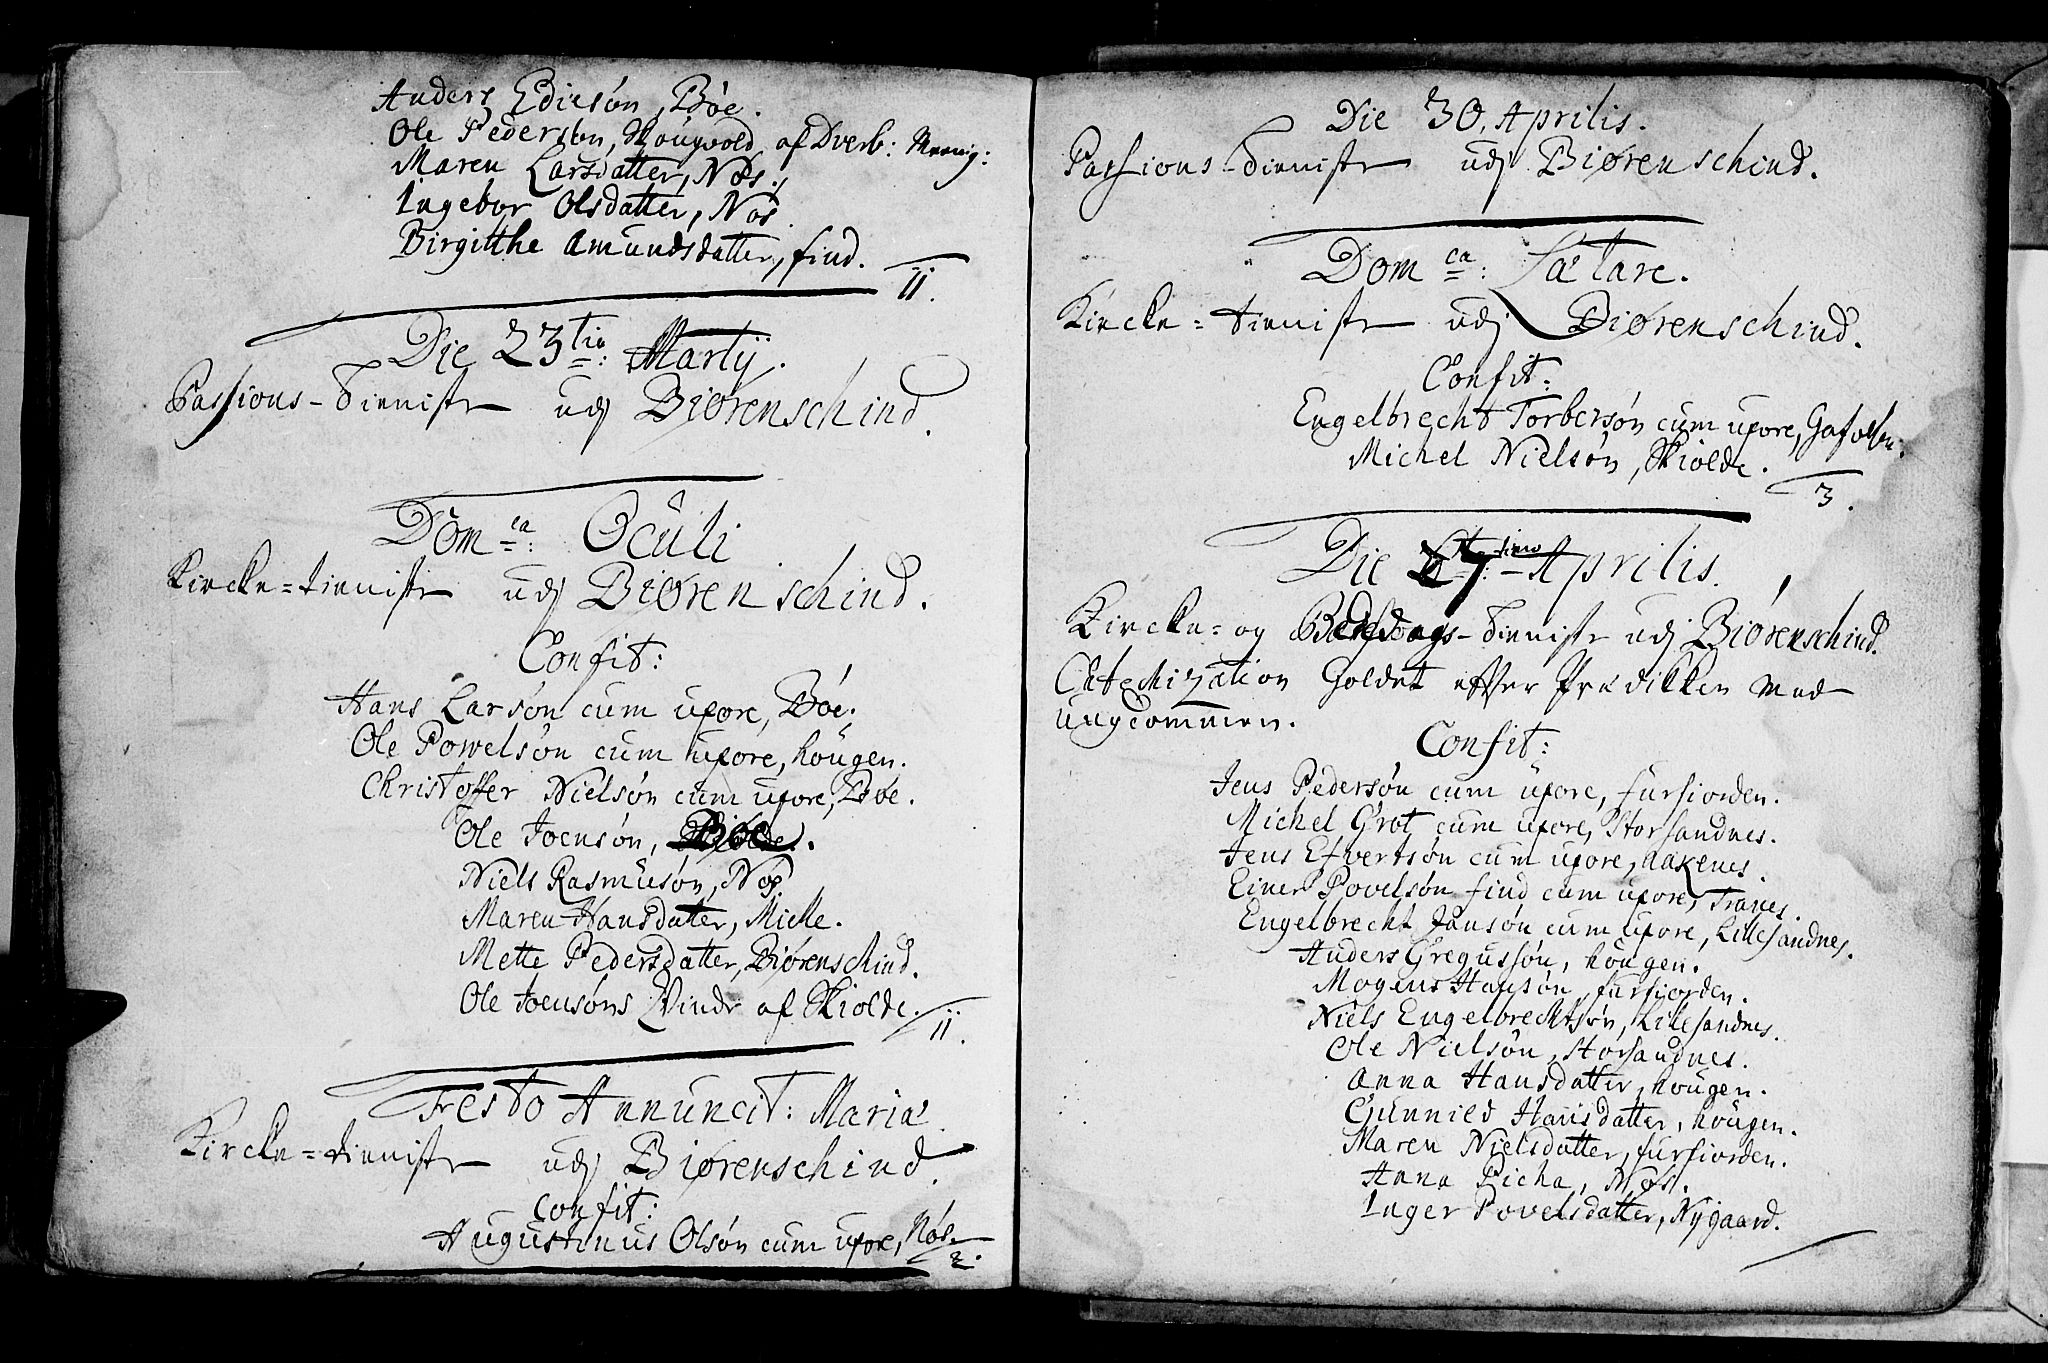 Anders Edisøn, Bøe.
Ole Pedersøn, Skougvold af Dverb: Menig:
Maren Larsdatter, Nøs.
Ingebor Olsdatter, Nøs.
Birgitthe Amundsdatter, find.
11.
Die 23tio: Martij.
Passions-Tieniste udj Biørenschind.
Domca: Oculi
Kircke-tieniste udj Biørenschind.
Confit:
Hans Larsøn cum uxore, Bøe.
Ole Powelsøn cum uxore, hougen.
Christoffer Nielsøn cum uxore, Bøe.
Ole Joensøn,
Niels Rasmusøn, Nøs.
Maren Hansdatter, Micke.
Mette Pedersdatter, Biørenschind.
Ole Joensøns Qvinde af Skiolde.
11.
Festo Annuncit: Mariæ.
Kircke-tieniste udj Biørenschind.
Confit:
Augustinus Olsøn cum uxore, Nøs.
2.
Die 30. Aprilis.
Passions-Tieniste udj Biørenschind.
Domca: Lætare.
Kircke-tieniste udj Biørenschind.
Confit:
Engelbrecht Torbersøn cum uxore,
Michel Nielsøn, Skiolde.
3.
Die 7timo Aprilis.
Kircke- og Bededags-Tieniste udj Biørenschind.
Catechization holdet efter Prædikken med
ungdommen.
Confit:
Jens Pedersøn cum uxore, furfiorden.
Michel Grot cum uxore, Storsandnes.
Jens Efvertsøn cum uxore, Aakenes.
Einer Povelsøn find cum uxore, Tranes.
Engelbrecht Jansøn cum uxore, Lillesandnes.
Anders Gregussøn, hougen.
Mogens Hansøn, furfiorden.
Niels Engelbrechtsøn, Lillesandnes.
Ole Nielsøn, Storsandnes.
Anna Hansdatter, hougen.
Gunnild Hansdatter, hougen.
Maren Nielsdatter, furfiorden.
Anna Picha, Nøss.
Inger Povelsdatter, Nygaard.